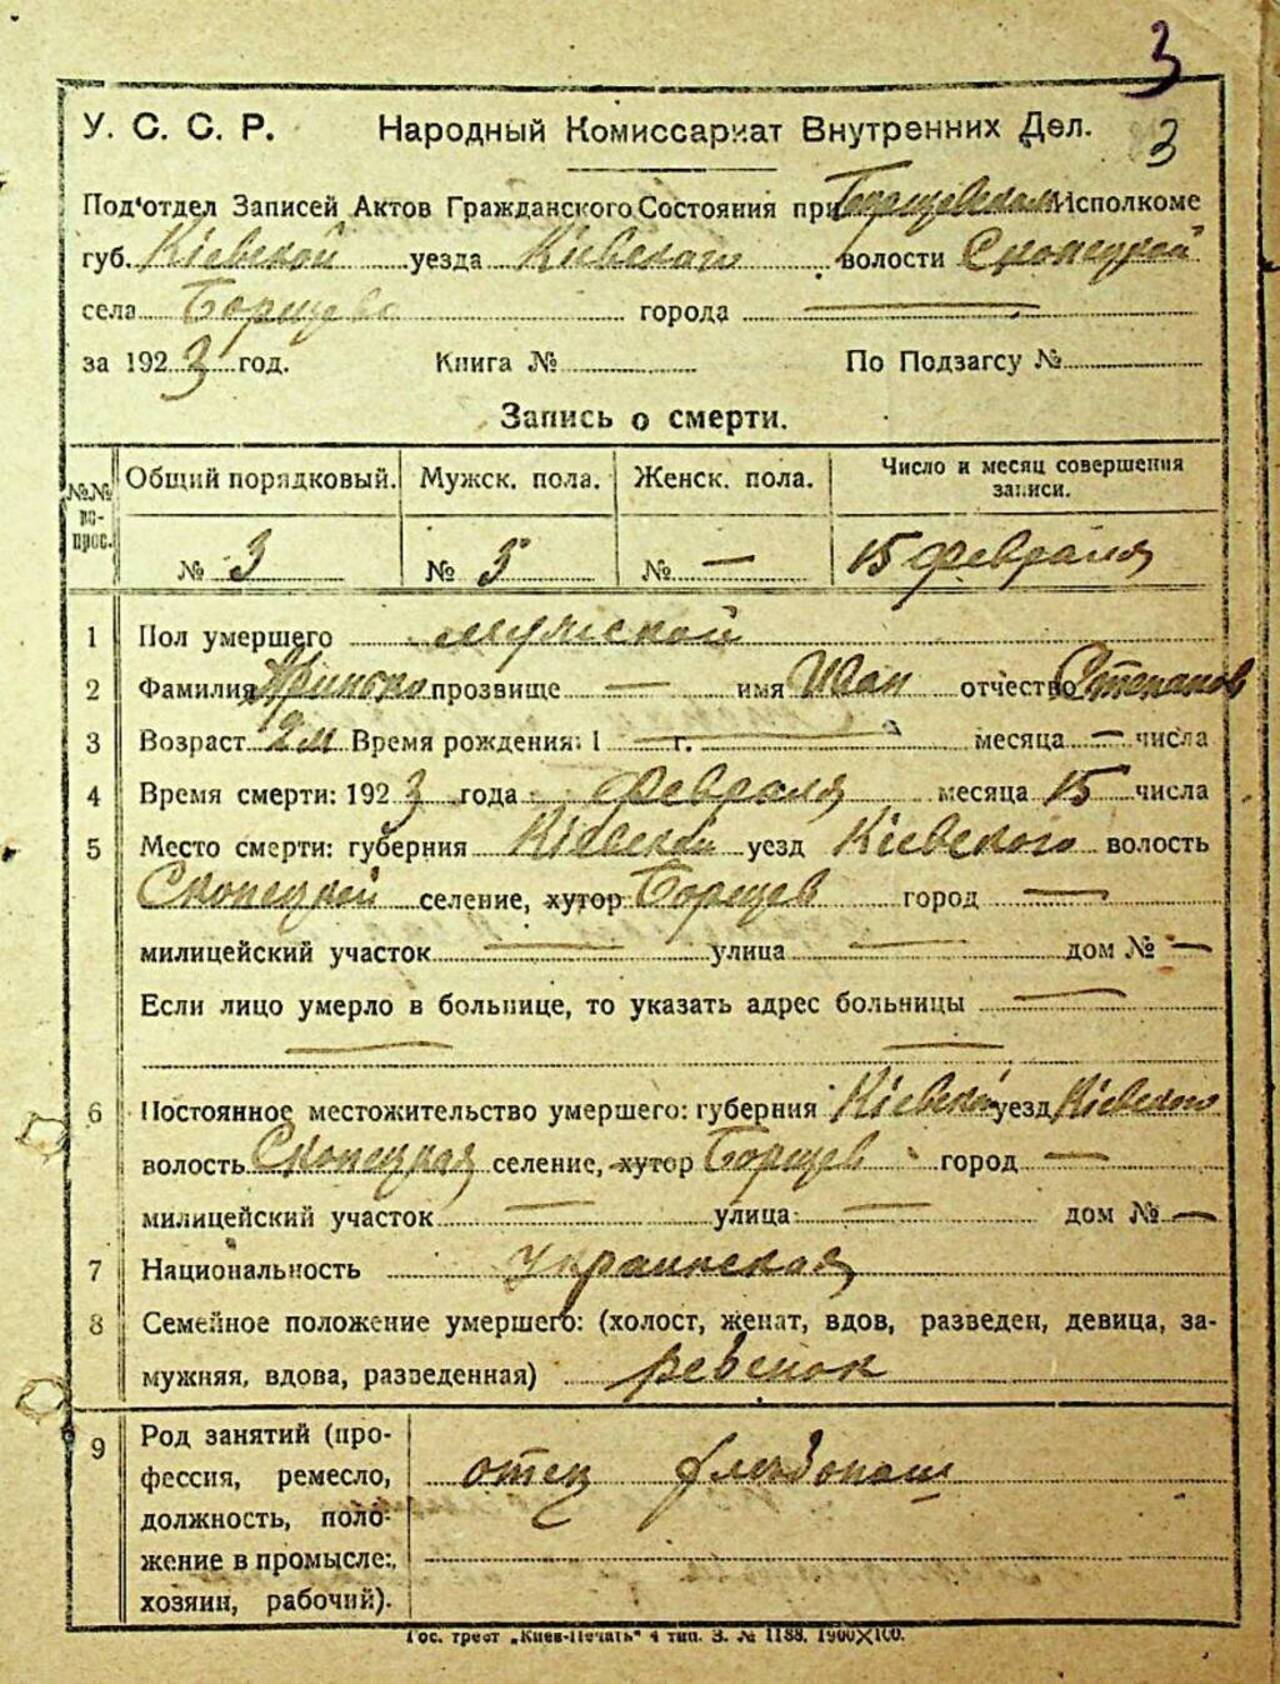 3
У. С. С. Р. Народный Комиссариат Внутренних Дел. 3
Под'отдел Записей Актов Гражданского Состояния при Борщевском Исполкоме
губ. Кіевской уезда Кіевского волости Скопецкой
села Борщева города —
за 1923 год. Книга № По Подзагсу №
Запись о смерти.
№№ вопрос. Общий порядковый. Мужск. пола. Женск. пола. Число и месяц совершения записи.
№ 3 № 3 № — 15 февраля
1 Пол умершего мужской
2 Фамилия прозвище — имя Иван отчество Степанов
3 Возраст 2 м Время рождения: 1 — г. — месяца — числа
4 Время смерти: 1923 года февраля месяца 15 числа
5 Место смерти: губерния Кіевской уезд Кіевского волость
Скопецкой селение, хутор Борщев город —
милицейский участок — улица — дом № —
Если лицо умерло в больнице, то указать адрес больницы —
— —
6 Постоянное местожительство умершего: губерния Кіевской уезд Кіевского
волость Скопецкая селение, хутор Борщев город —
милицейский участок — улица — дом № —
7 Национальность украинская
8 Семейное положение умершего: (холост, женат, вдов, разведен, девица, за-
мужняя, вдова, разведенная) ребенок
9 Род занятий (про-
фессия, ремесло, отец хлебопаш
должность, поло-
жение в промысле:,
хозяин, рабочий).
Гос. трест „Киев-Печать" 4 тип. З. № 1188. 1900×100.